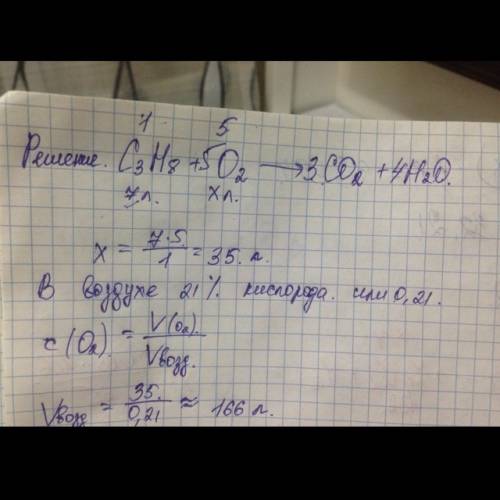 1 5
Решение. C₃H₈ + 5O₂ → 3CO₂ + 4H₂O.
7л. xл.
x = 7·5/1 = 35 л.
В воздухе 21% кислорода. или 0,21.
c(O₂) = V(O₂)./Vвозд.
Vвозд = 35./0,21 ≈ 166 л.